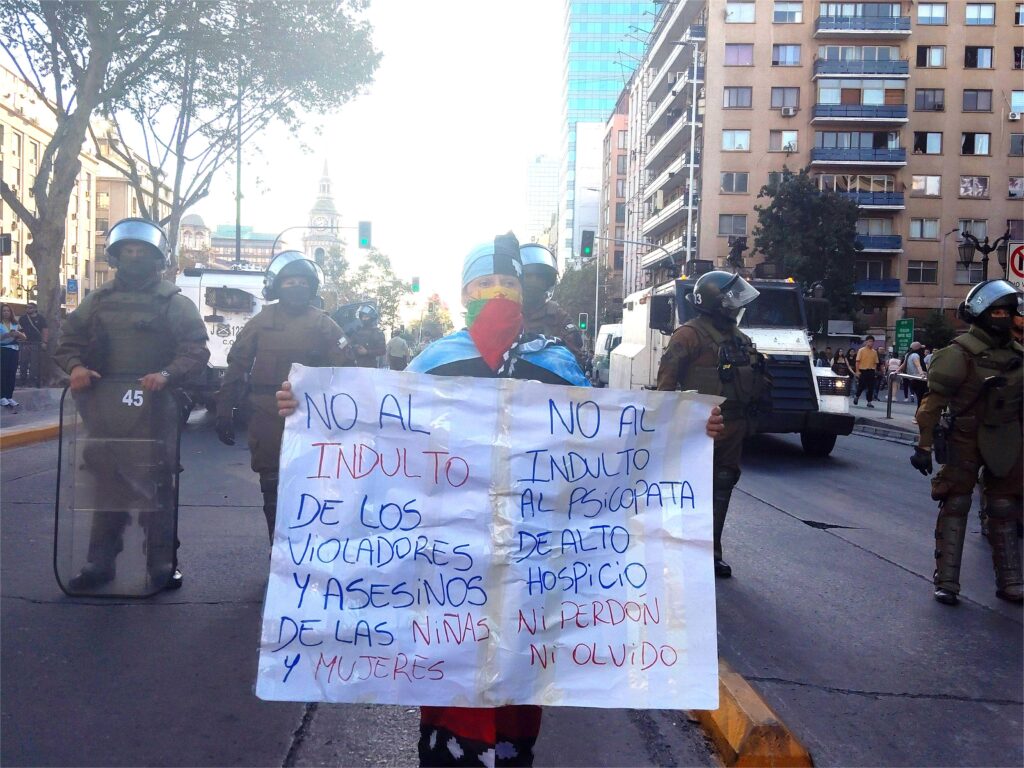 NO AL
INDULTO
DE LOS
VIOLADORES
Y ASESINOS
DE LAS NIÑAS
Y MUJERES
NO AL
INDULTO
AL PSICOPATA
DE ALTO
HOSPICIO
NI PERDÓN
NI OLVIDO
45
13